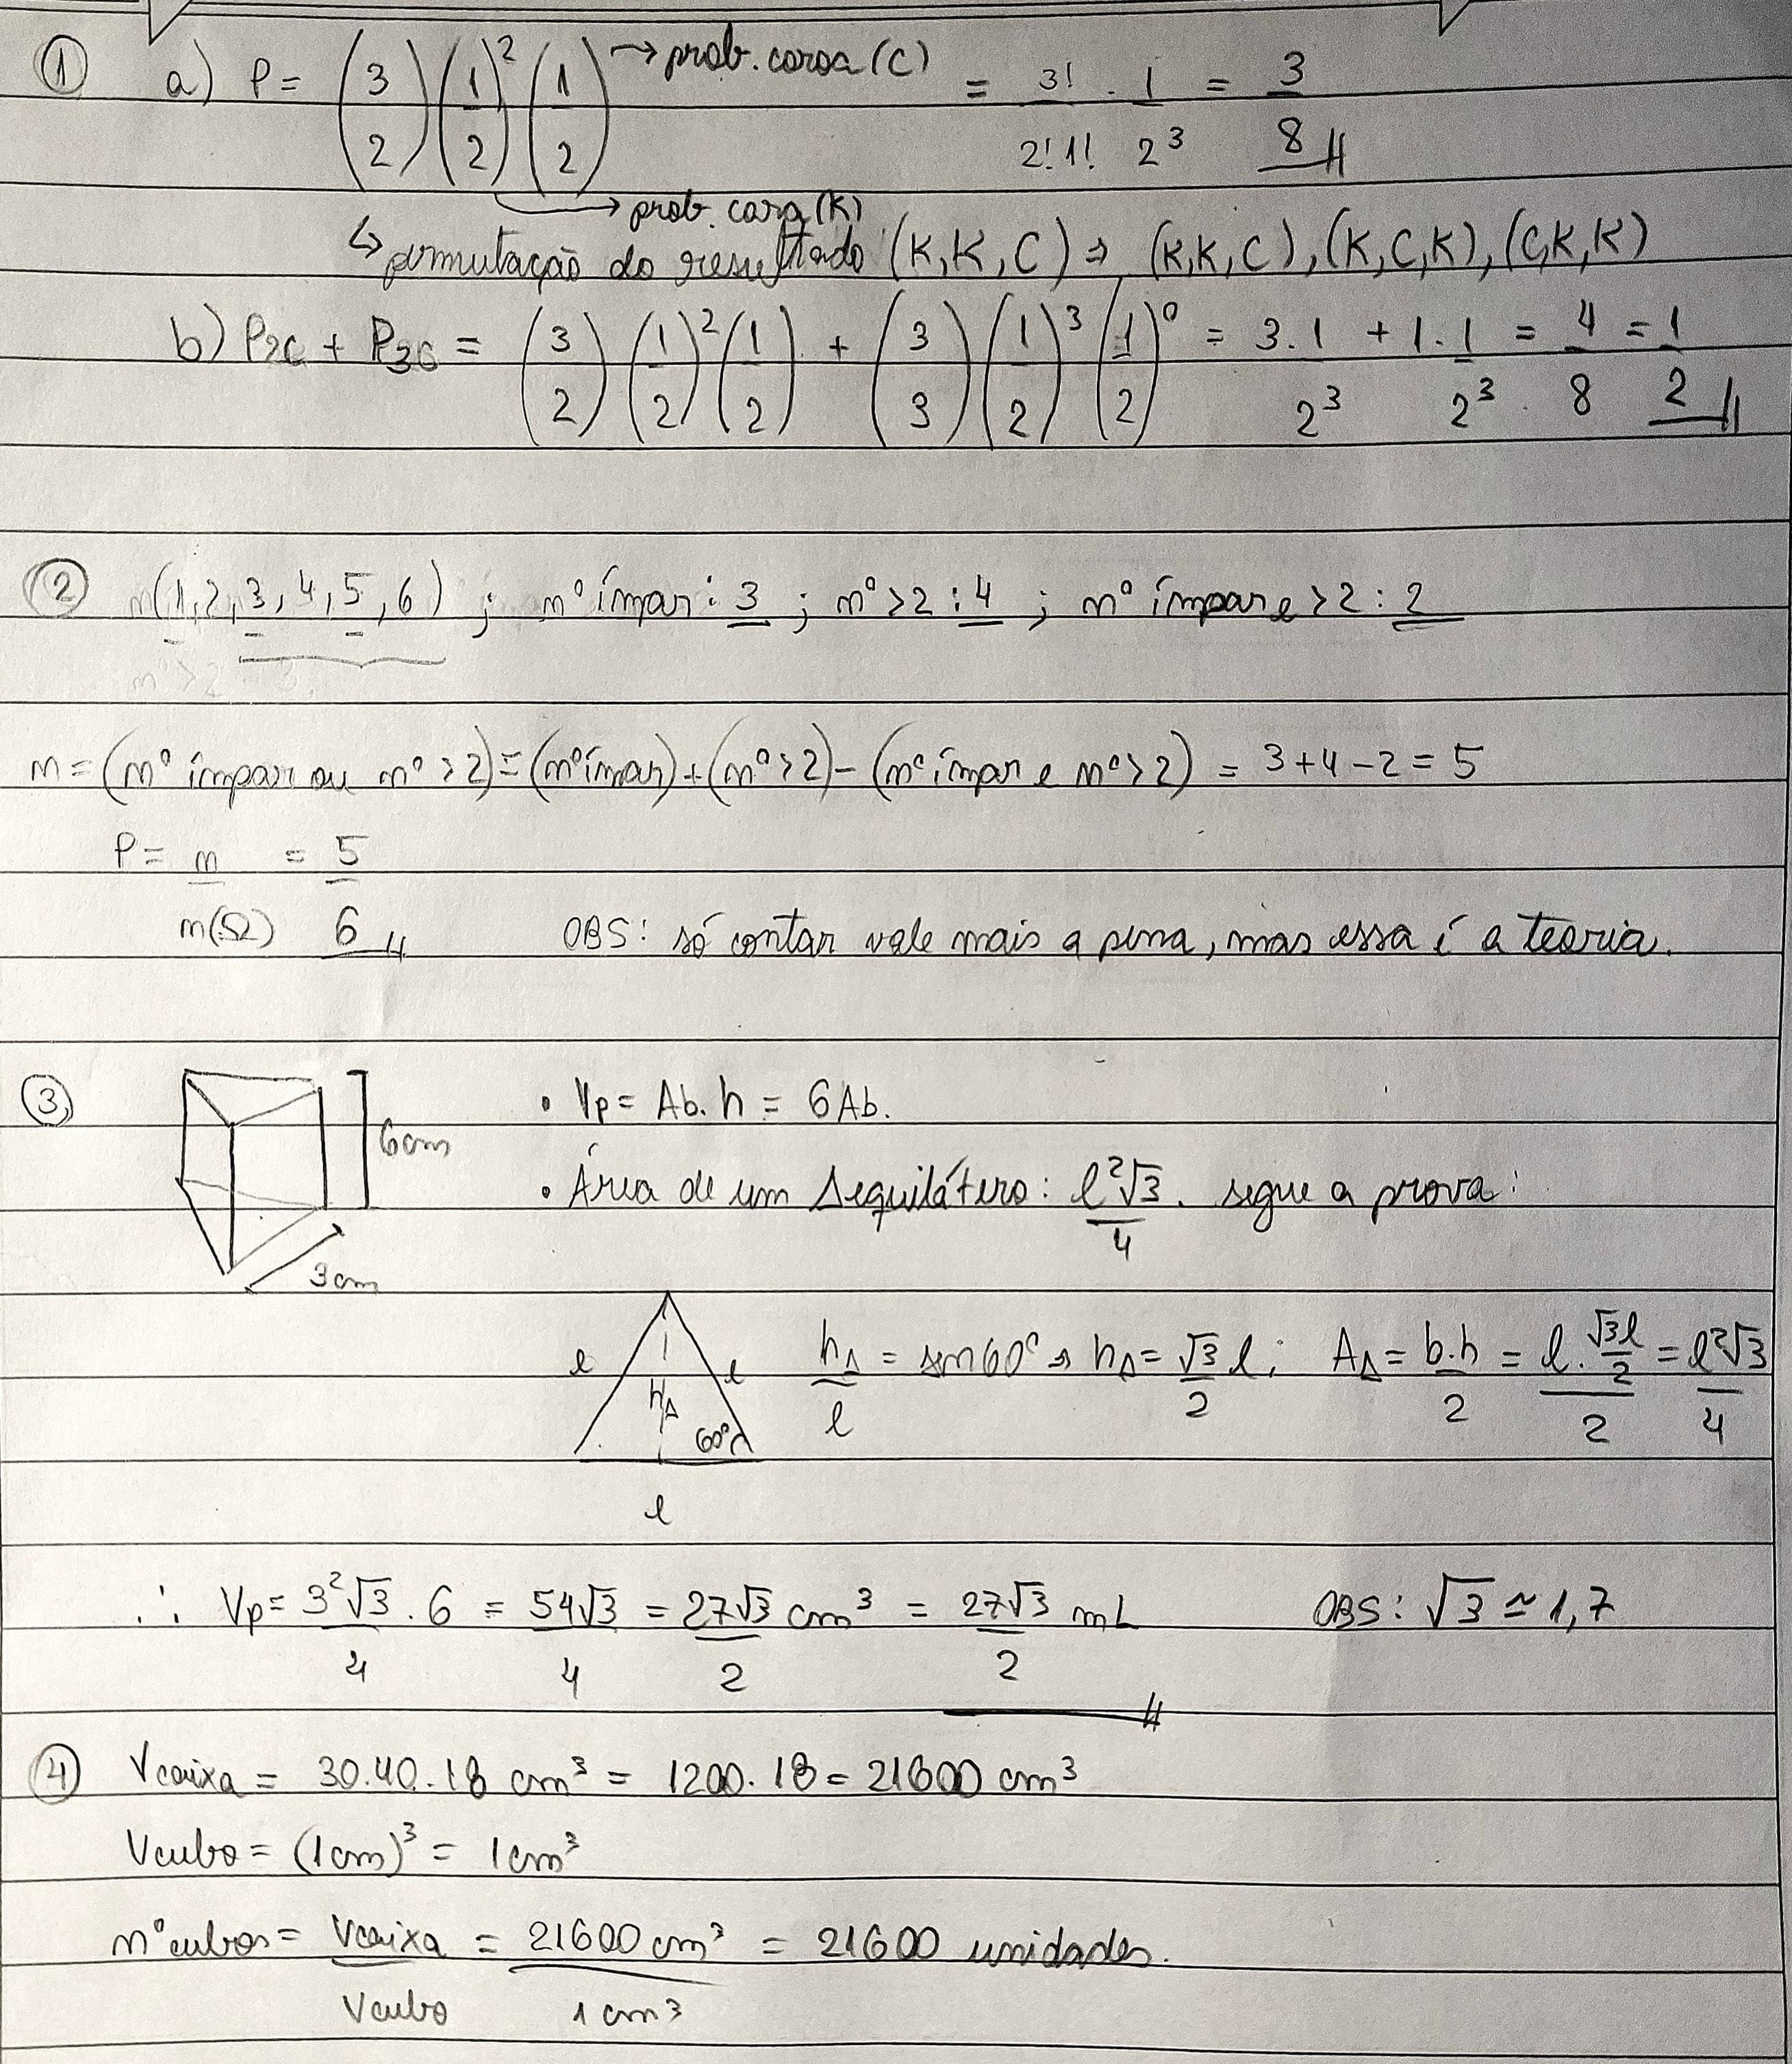 ① a) P = (3 2) (1/2)² (1/2) → prob. coroa (C) = 3!/2!1! · 1/2³ = 3/8
→ prob. cara (K)
↳ permutação do resultado (K, K, C) ⇒ (K,K,C), (K,C,K), (C,K,K)
b) P2C + P3C = (3 2) (1/2)² (1/2) + (3 3) (1/2)³ (1/2)⁰ = 3·1/2³ + 1·1/2³ = 4/8 = 1/2
② n(1,2,3,4,5,6) ; nº ímpar: 3 ; nº>2 : 4 ; nº ímpar e >2 : 2
n = (nº ímpar ou nº >2) = (nº ímpar) + (nº >2) − (nº ímpar e nº >2) = 3+4−2 = 5
P = n/n(Ω) = 5/6
OBS: só contar vale mais a pena, mas essa é a teoria.
③ 6cm
3cm
• Vp = Ab. h = 6Ab.
• Área de um Δequilátero: l²√3/4. segue a prova:
l l hΔ 60° l
hΔ/l = sen60° ⇒ hΔ = √3/2 l; AΔ = b.h/2 = l.√3l/2/2 = l²√3/4
∴ Vp = 3²√3/4 . 6 = 54√3/4 = 27√3/2 cm³ = 27√3/2 mL OBS: √3 ≃ 1,7
④ Vcaixa = 30.40.18 cm³ = 1200.18 = 21600 cm³
Vcubo = (1cm)³ = 1cm³
nºcubos = Vcaixa/Vcubo = 21600 cm³/1 cm³ = 21600 unidades.